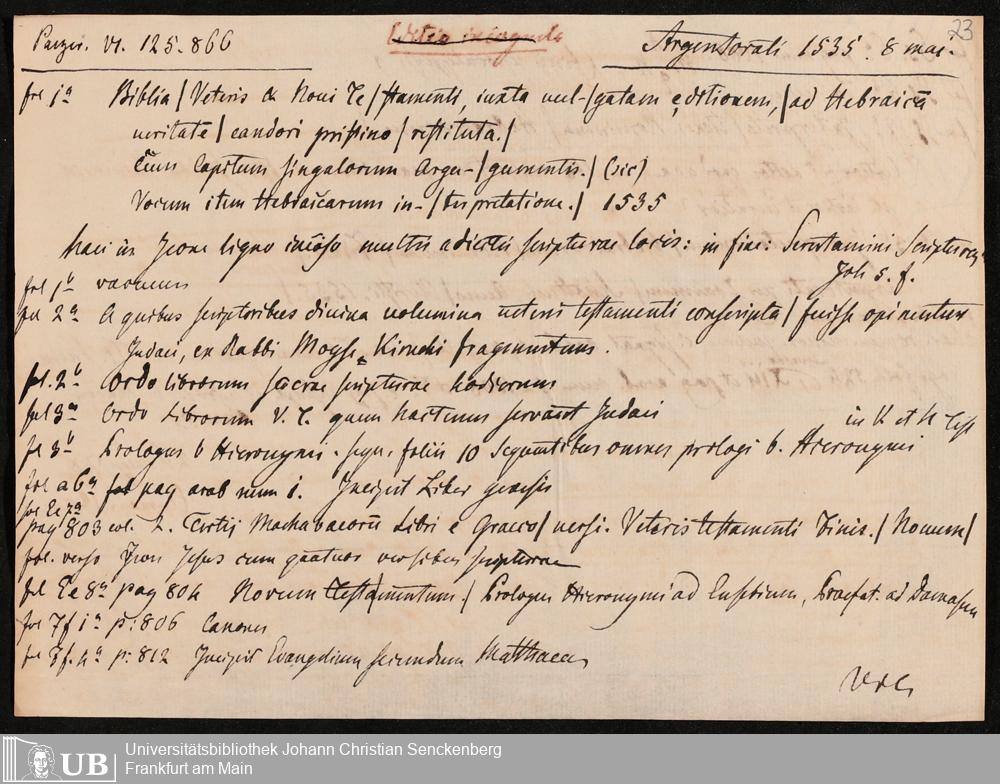 Panzer. VI. 125. 866
Argentorati 1535. 8 mai.
23
fol 1a Biblia / Veteris & Noui Te / stamenti, iuxta uul- / gatam editionem, / ad Hebraicā
ueritatē / candori pristino / restituta. /
Cum Capitum singulorum Argu- / gumentis. / (sic)
Vocum item Hebraicarum in- / terpretatione. / 1535
Haec in Icone ligno inciso multis adiectis scripturae locis: in fine: Scrutamini Scripturas
Joh 5. f.
fol 1b vacuum
fol 2a A quibus scriptoribus diuina uolumina ueteris testamenti conscripta / fuisse opinentur
Judaei, ex Rabbi Mosse Kimchi fragmentum.
fol. 2b Ordo librorum sacrae scripturae hodiernus
fol 3a Ordo Librorum V. T. quem hactenus servant Judaei
fol 3b Prologus b Hieronymi. sequ. foliis 10 Sequentibus omnes prologi b. Hieronymi
in V et N Test
fol a 6a pag arab num 1. Incipit Liber genesis
fol Ee 7a
pag 803 col. 2. Tertij Machabaeorū Libri e Graeco / uersi. Veteris testamenti Finis. / Nouum /
fol. verso Icon Jesus cum quatuor versibus scripturae
fol Ee 8a pag 804 Novum Testamentum. / Prologus Hieronymi ad Eusebium, Praefat. ad Damasum
fol Ff 1a p: 806 Canones
fol Ff. 4a p: 812 Incipit Evangelium secundum Matthaeum
Universitätsbibliothek Johann Christian Senckenberg
UB Frankfurt am Main